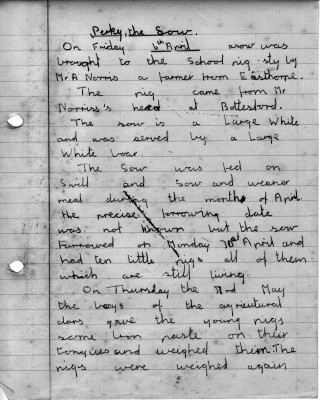 Perky, the Sow.
On Friday 6th April a sow was
brought to the School pig-sty by
Mr A Norris a farmer from Easthorpe.
The pig came from Mr
Norriss's herd at Bottesford.
The sow is a Large White
and was served by a Large
White boar.
The Sow was fed on
Swill and Sow and weaner
meal during the month of April.
The precise forrowing date
was not known but the sow
furrowed on Monday April and
had ten little pigs all of them
which are still living.
On Thursday the May
the boys of the agricultural
class gave the young pigs
some Iron paste on their
tongues and weighed them. The
pigs were weighed again